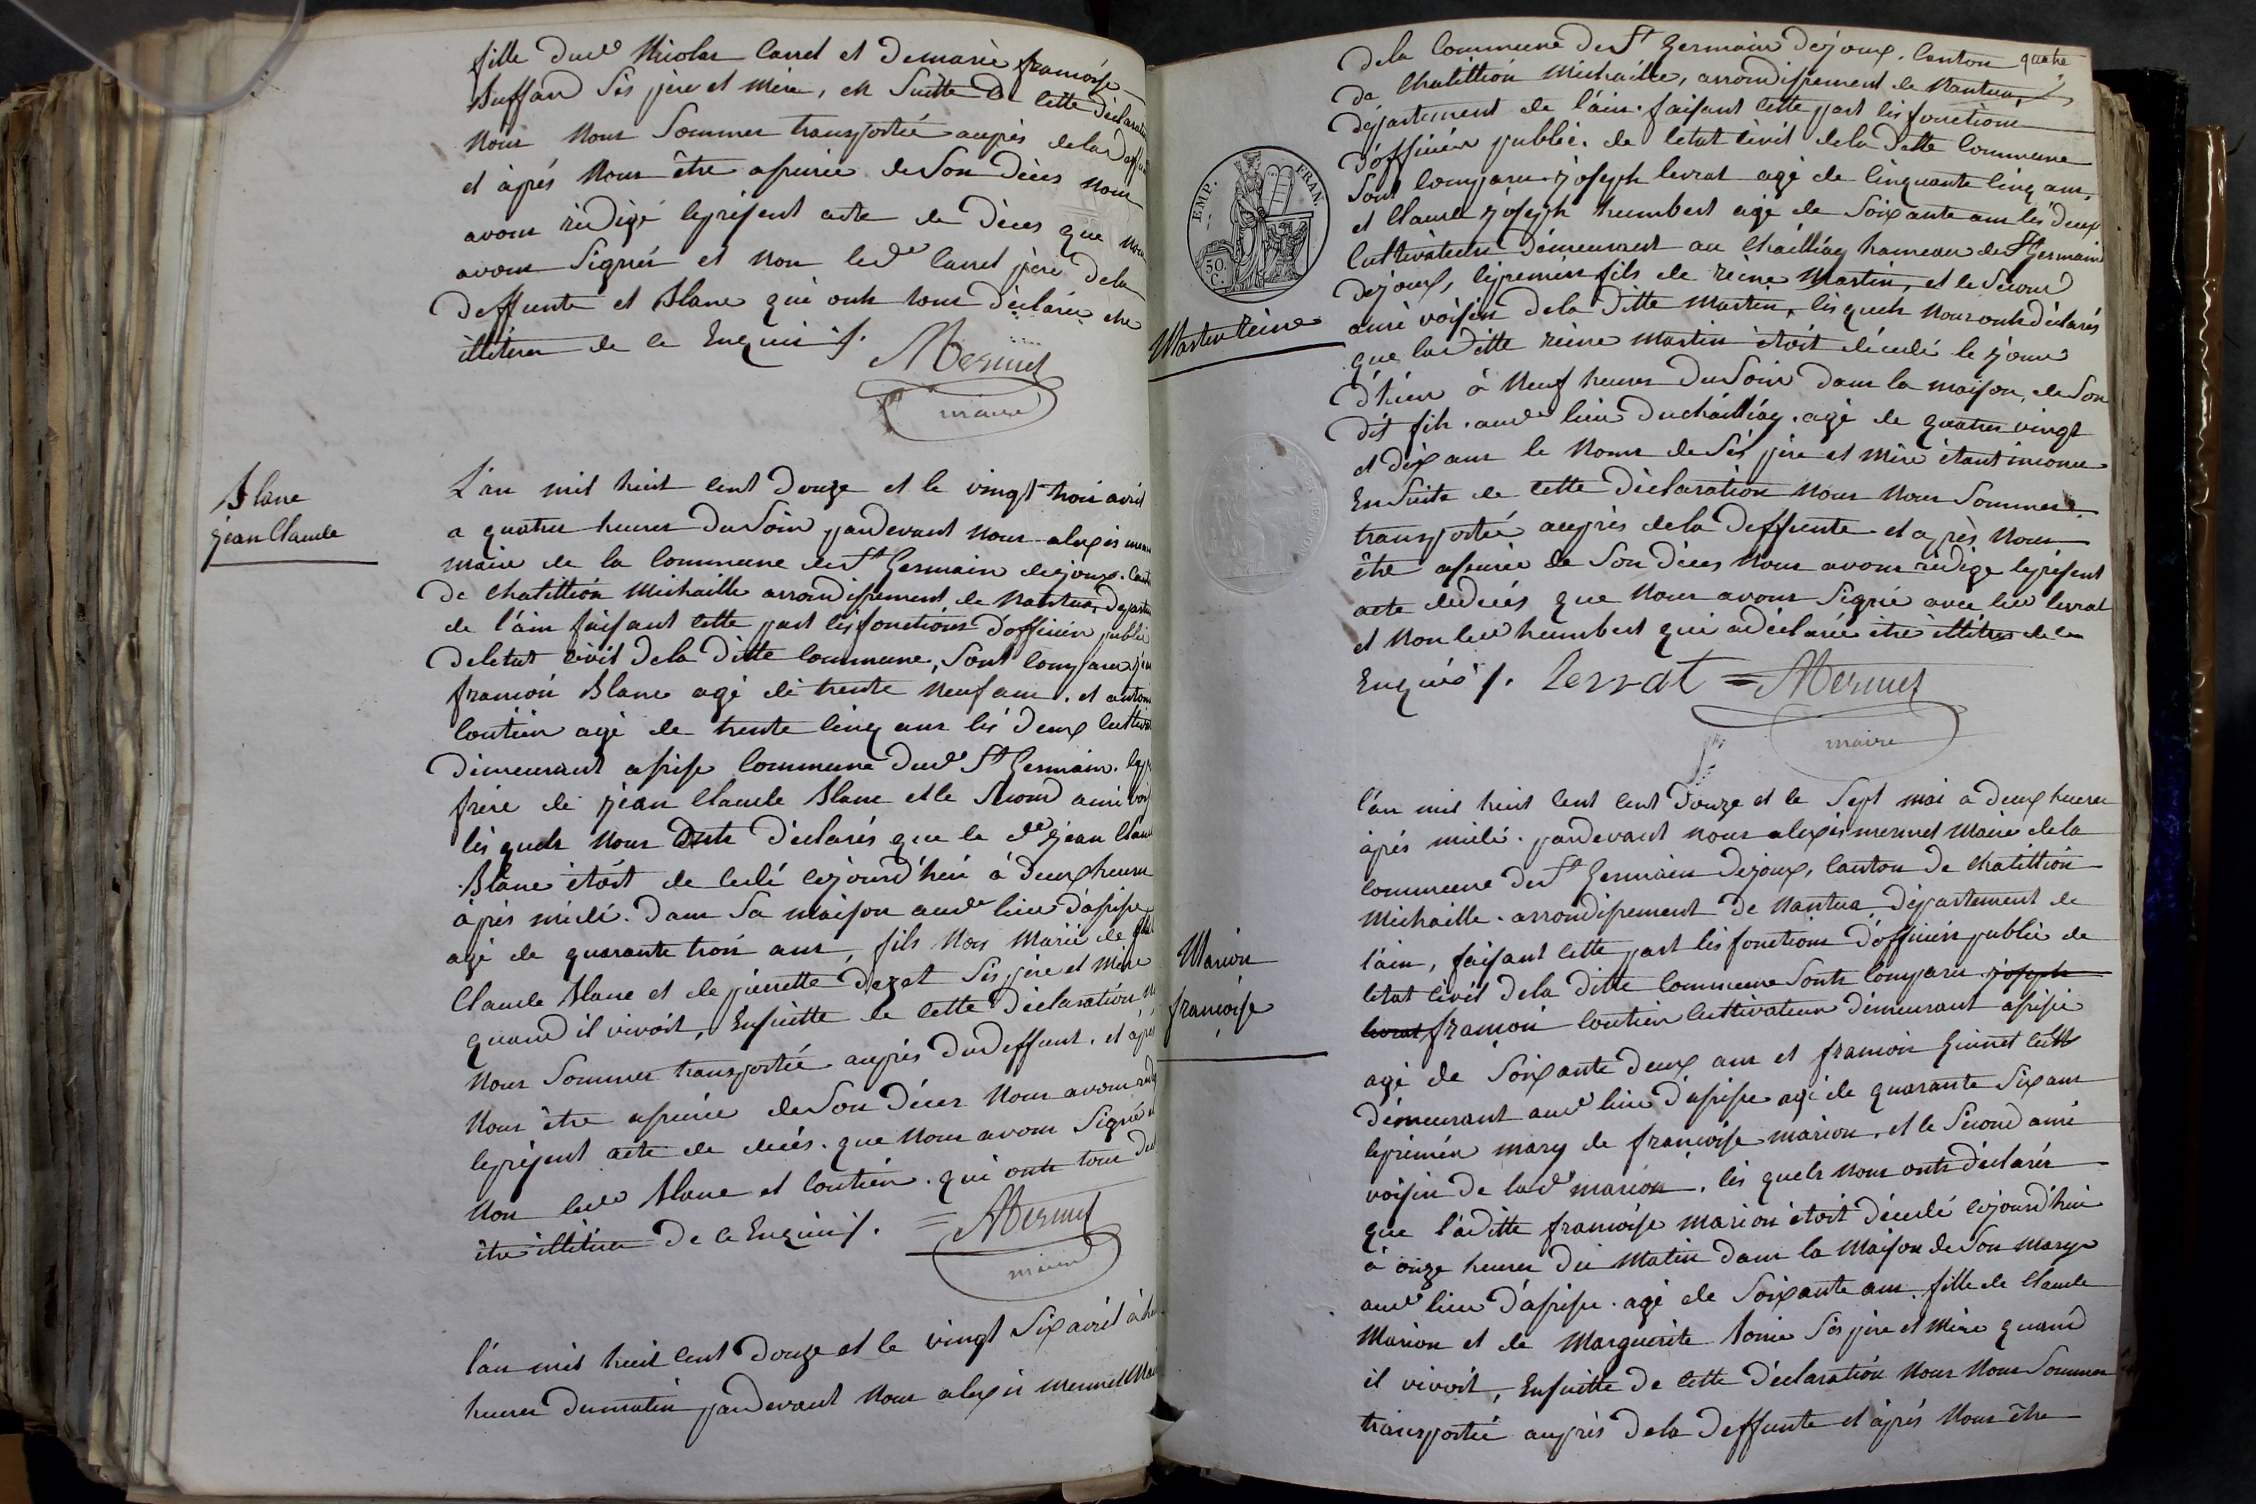 fille dud Nicolas Carrel et de marie françoise
Buffard ses père et mère, en Suitte de cette déclaration
nous nous Sommes transportée auprès de la deffunte
et après nous être assurée de Son décès nous
avons rédigé le présent acte de décès que nous
avons Signés et non led Carrel père de la
deffunte et Blanc qui onts tous déclarés être
illitérés de ce Enquis /.
AMermet
maire
Blanc
jean Claude
L'an mil huit cent douze et le vingt trois avril
a quatre heures du Soir pardevant nous alexis mermet
maire de la Commune de St Germain dejoux. Canton
de Chatillion Michaille arrondissement de Nantua, département
de l'ain faisant cette part les fonctions d'officier public
de letat civil de la ditte Commune, Sont Comparu jean
françois Blanc agé de trente neuf ans. et antoine
Coutier agé de trente cinq ans les deux Cultivateurs
démeurant assise Commune dud St Germain. le pr
frère de jean Claude Blanc et le Second ami voisin
les quels nous onts déclarés que le dd jean Claude
Blanc étoit de cedé cejourd'hui à deux heures
après midi. dans Sa maison aud lieu d'asise
agé de quarante trois ans, fils non Marié de
Claude Blanc et de pierrette dagat Ses père et Mère
quand il vivoit, Ensuitte de cette déclaration nous
nous Sommes transportée auprès du deffunt. et après
nous être assurée de Son décès nous avons rédigé
le présent acte de décés. que nous avons Signé et
non led Blanc et Coutier. qui onts tous déclaré
être illitérés de ce Enquis /. = AMermet
maire
l'an mil huit cent douze et le vingt Six avril à huit
heures du matin pardevant nous alexis mermet Maire
quatre
de la Commune de St Germain dejoux. Canton
de Chatillion Michaille, arrondissement de Nantua,
département de l'ain. faisant cette part les fonctions
d'officier public. de letat civil de la ditte Commune
Sont Comparu. joseph levrat agé de Cinquante Cinq ans,
et Claude joseph humbert agé de Soixante ans les deux
Cultivateurs démeurant au Chailliay hameau de St Germain
dejoux, le premier fils de reine Martin, et le Second
ami voisin de la ditte Martin, les quels nous onts déclarés
que la ditte reine Martin étoit décedé le jour
d'hier à Neuf heures du Soir dans la maison, de Son
dit fils. aud lieu du chailliay. agé de quatres vingt
et dix ans le noms de Ses père et Mère étant inconu
En Suite de cette déclaration nous nous Sommes
transportée auprès de la deffunte et après nous
être assurée de Son décès nous avons rédigé le présent
acte de décés que nous avons Signé avec led levrat
et non led humbert qui a déclarée être illitéres de ce
Enquis /. Levrat = AMermet
maire
EMP. FRAN.
50. C.
Martin Reine
l'an mil huit cent cent douze et le Sept mai a deux heures
après midi. pardevant nous alexis mermet Maire de la
Commune de St Germain dejoux, Canton de Chatillion
Michaille. arrondissement de Nantua département de
l'ain, faisant cette part les fonctions d'officier public de
letat civil de la ditte Commune Sonts Comparu. joseph
levrat françois Coutier Cultivateur démeurant assise
agé de Soixante deux ans et françois Guinet Cult
démeurant aud lieu d'asise agé de quarante Six ans
le premier mary de françoise marion, et le Second ami
voisin de lad marion, les quels nous onts déclarés
que l'aditte françoise marion étoit décedé cejourd'hui
à onze heures du Matin dans la Maison de Son mary
aud lieu d'asise. agé de Soixante ans. fille de Claude
Marion et de Marguerite Ses père et Mère quand
il vivoit, Ensuitte de cette déclaration nous nous Sommes
transportée auprès de la deffunte et après nous être
Marion
françoise